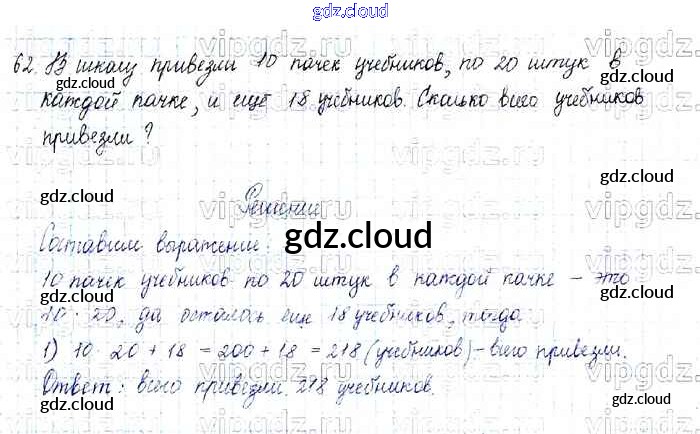 gdz.cloud
62. В школу привезли 10 пачек учебников, по 20 штук в
каждой пачке, и ещё 18 учебников. Сколько всего учебников
привезли?
Решение
Составим выражение:
10 пачек учебников по 20 штук в каждой пачке – это
10 · 20, да осталось еще 18 учебников, тогда
1) 10 · 20 + 18 = 200 + 18 = 218 (учебников) – всего привезли.
Ответ: всего привезли 218 учебников.